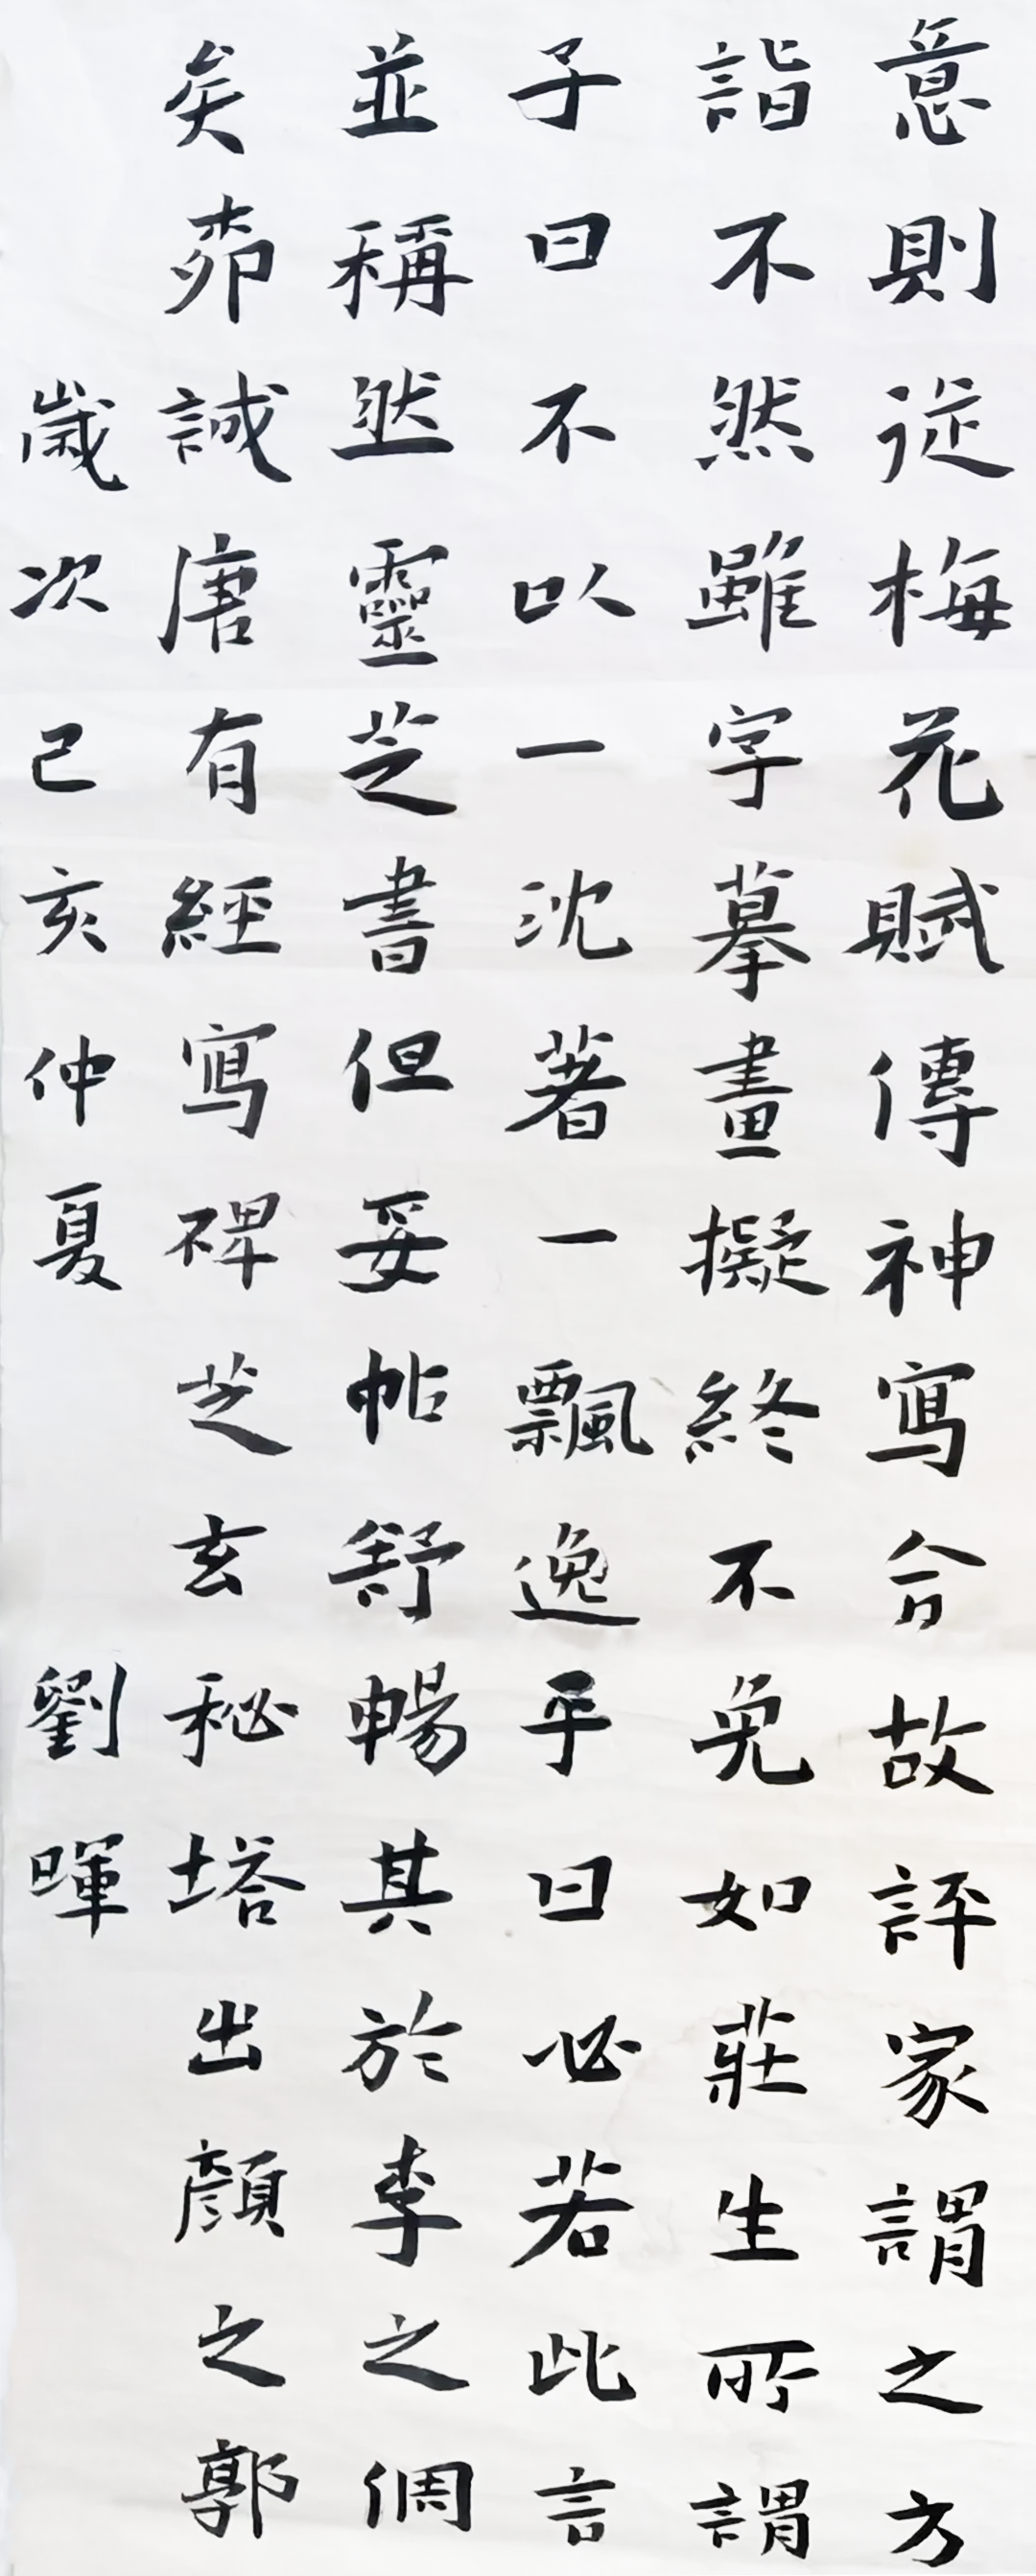 意則從梅花賦傳神寫合故評家謂之方
詣不然雖字摹畫擬終不免如莊生所謂
子曰不以一沈著一飄逸乎曰必若此言
並稱然靈芝書但妥帖舒暢其於李之倜
矣茆誠唐有經寫碑芝玄秘塔出顏之郭
歲次己亥仲夏 劉暉